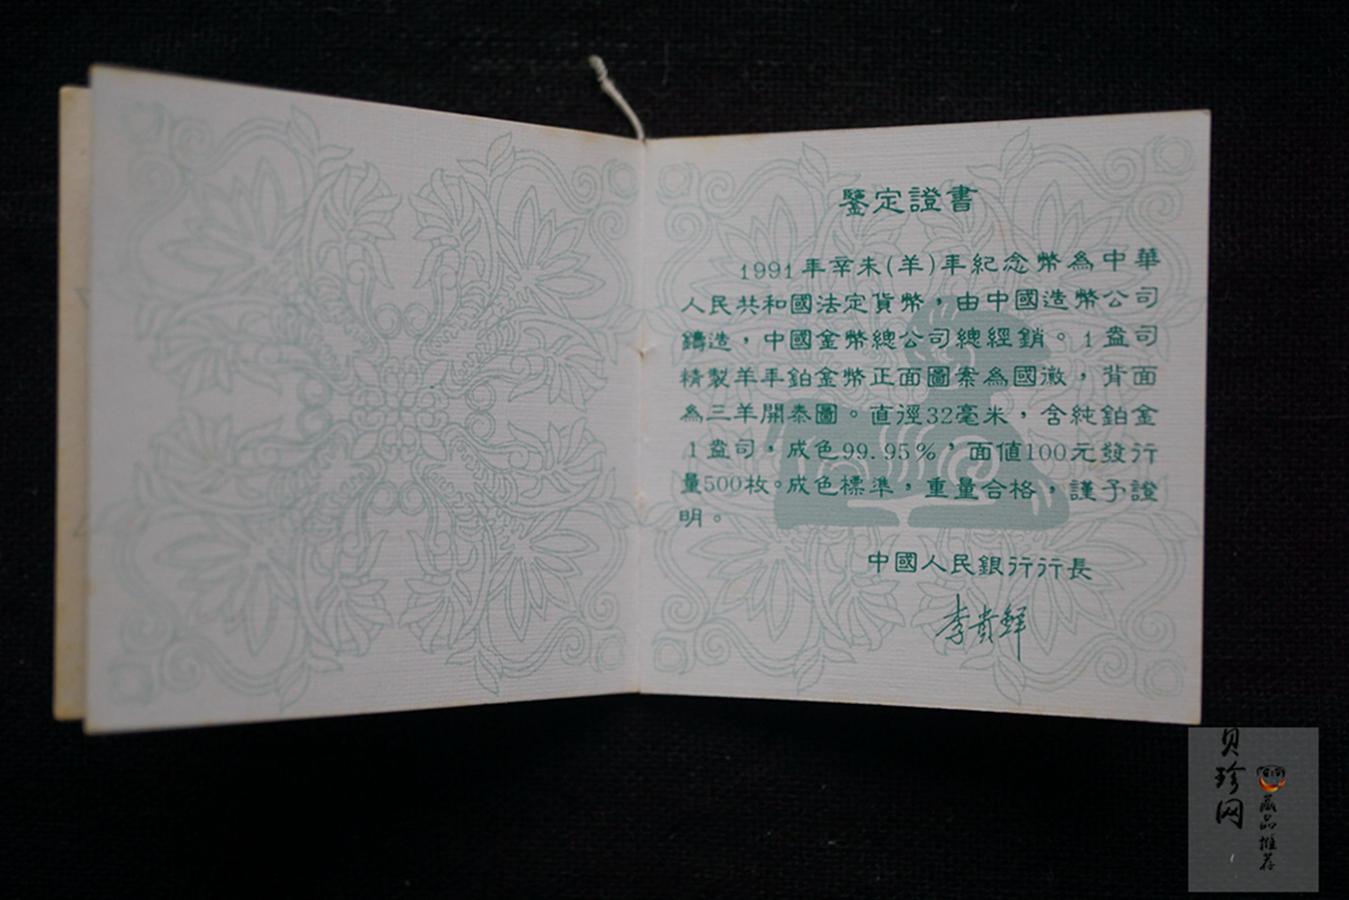 鑒定證書
1991年辛未(羊)年紀念幣為中華
人民共和國法定貨幣，由中國造幣公司
鑄造，中國金幣總公司總經銷。1盎司
精製羊年鉑金幣正面圖案為國徽，背面
為三羊開泰圖。直徑32毫米，含純鉑金
1盎司，成色99.95%，面值100元發行
量500枚。成色標準，重量合格，謹予證
明。
中國人民銀行行長
李貴鮮
贝珍网
藏品推荐